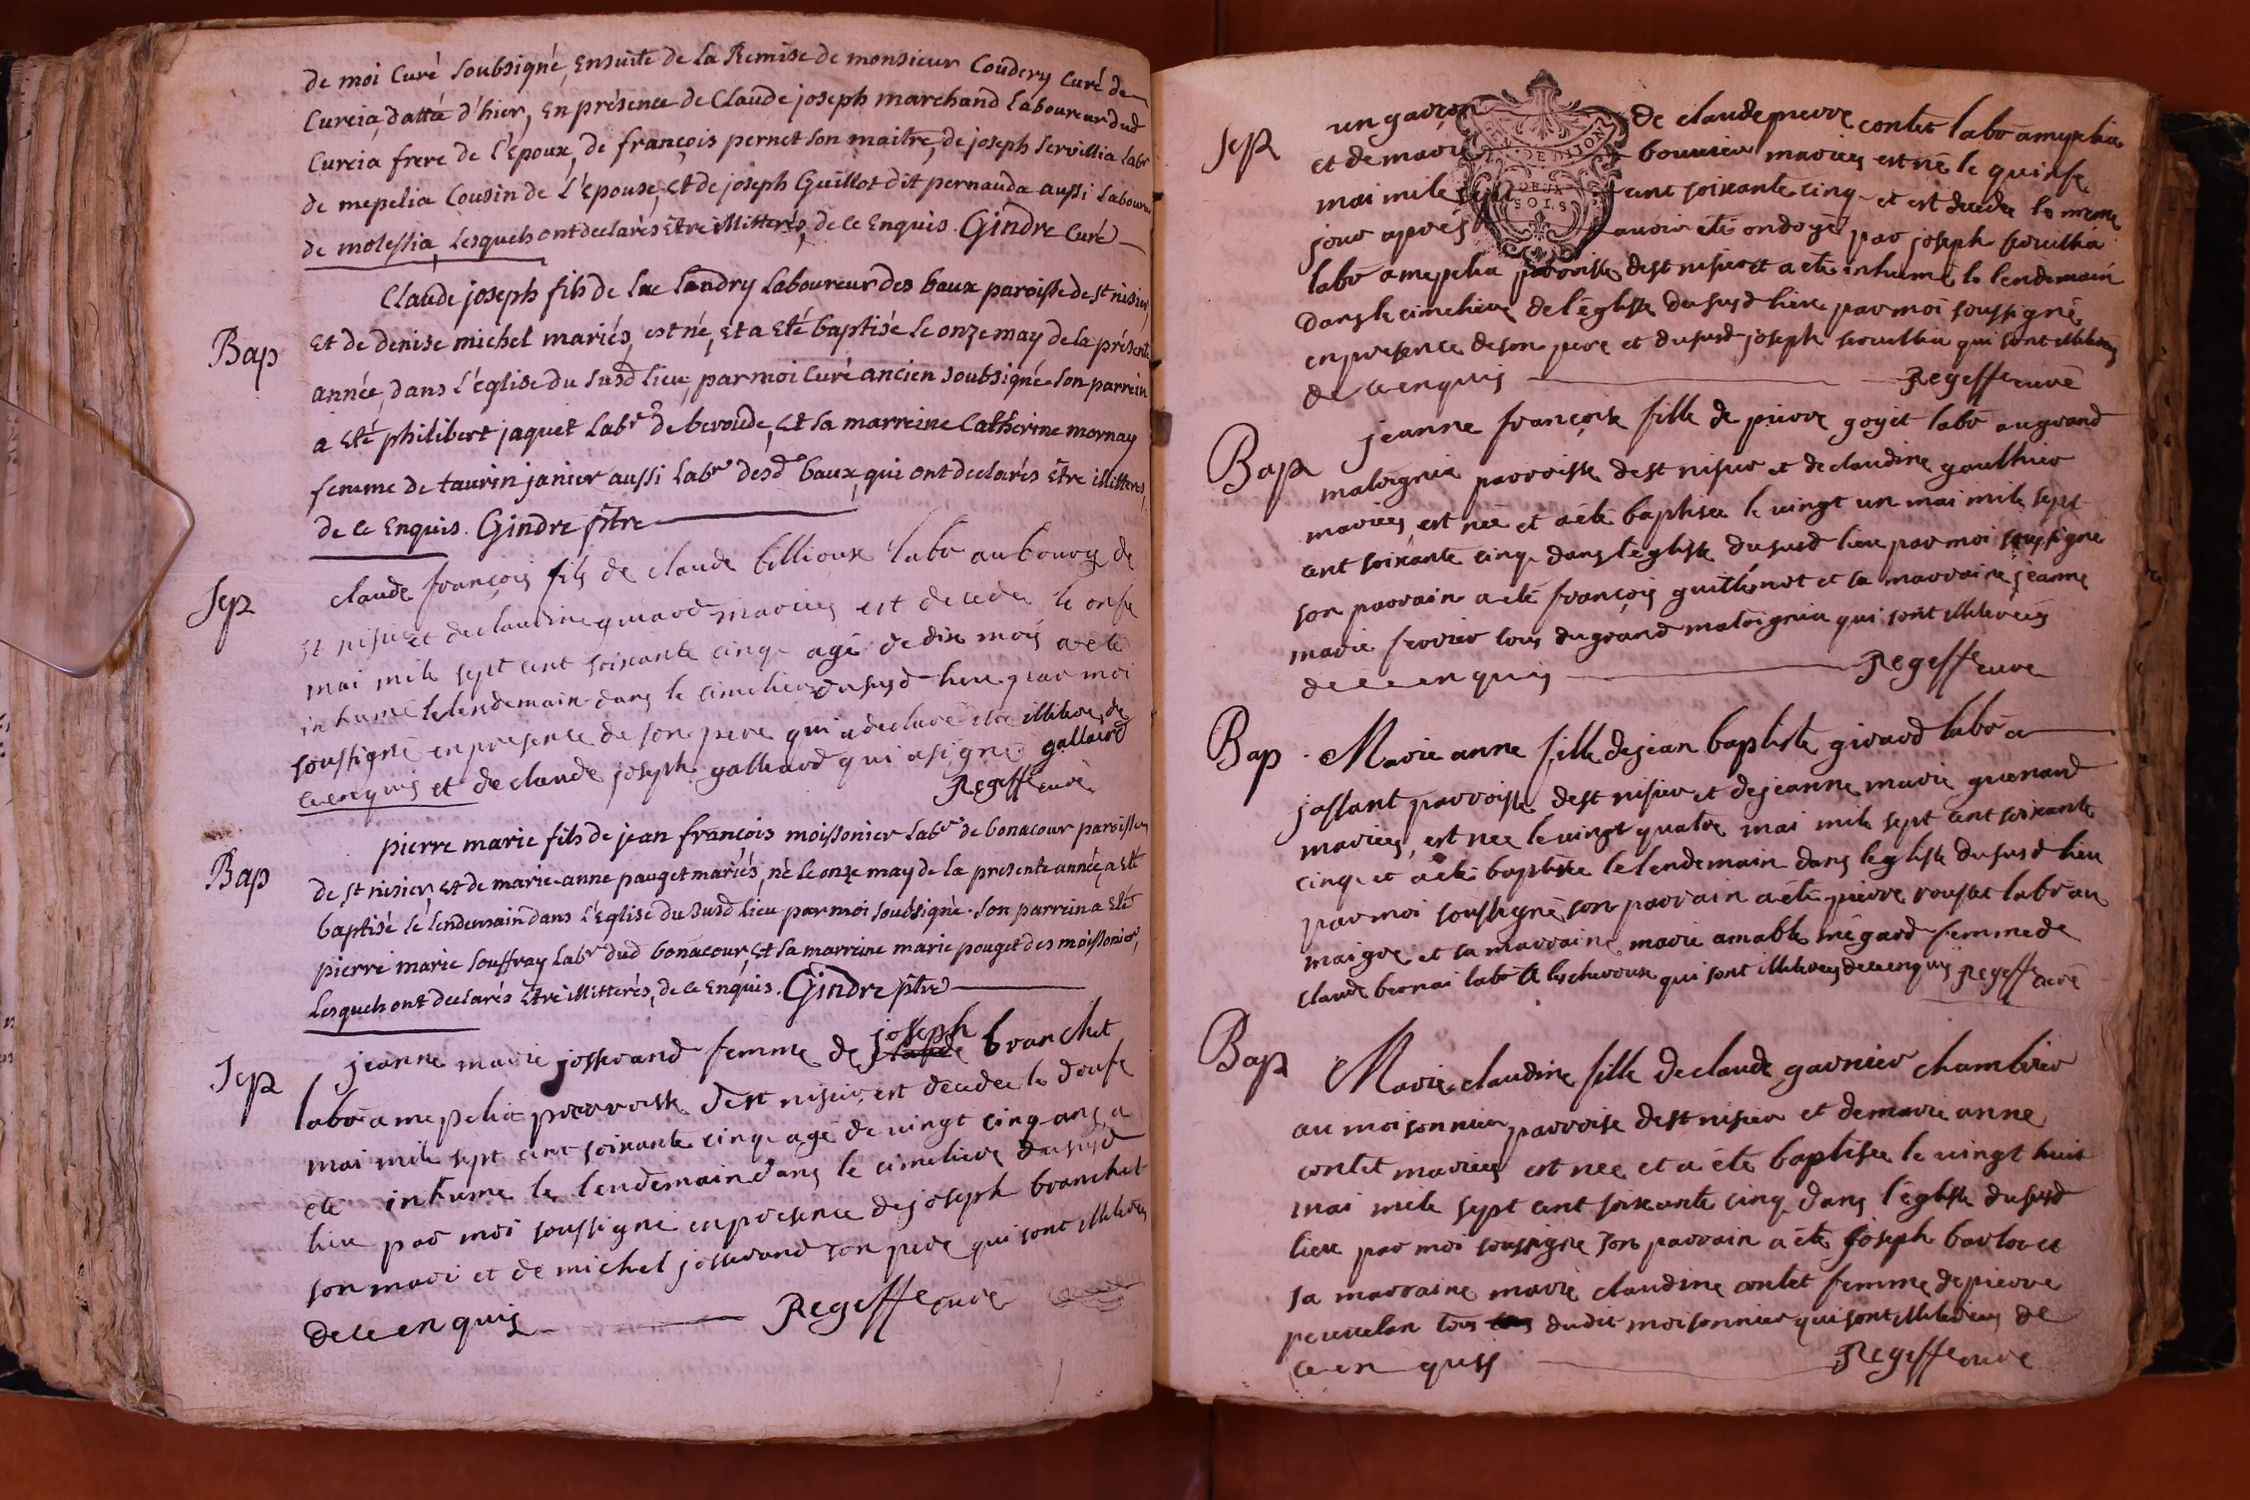 de moi Curé soubsigné, Ensuite de la Remise de monsieur Coudery Curé de
Curcia, datta d'hier, En présence de Claude joseph marchand Laboureur dud
Curcia frere de l'Epoux, de françois pernet son maitre, de joseph servillia labr
de mepelia Cousin de l'Epouse, Et de joseph Guillot dit pernauda aussi Laboureur
de molessia, lesquels ont declarés Etre illitterés, de ce Enquis. Gindre Curé
Claude joseph fils de luc landry Laboureur des baux paroisse de st nisier,
Bap
Et de denise michel mariés, est né, Et a Eté baptisé le onze may de la présente
année, dans l'église du susd lieu, par moi Curé ancien soubsigné. son parrein
a Eté philibert jaquet Labr de beroude, Et sa marreine Catherine mornay
femme de taurin janier aussi Labr desd baux, qui ont declarés Etre illitteres,
de ce Enquis. Gindre ptre
Sep
claude françois fils de claude billioux labo au bourg de
st nisier et de claudine quard mariés est decede le onse
mai mile sept cent soixante cinq agé de dix mois a eté
inhumé le lendemain dans le cimetiere du susd lieu par moi
soussigné en presence de son pere qui a declaré etre illiteré de
ce enquis et de claude joseph galleard qui a signé gallaird
Regeffe curé
Bap
pierre marie fils de jean françois moissonier Labr de bonacour paroisse
de st nisier, Et de marie anne pauget mariés, né le onze may de la presente année, a Eté
baptisé le lendemain dans l'Eglise du susd lieu par moi soubsigné. son parrein a Eté
pierre marie souffray Labr dud bonacour, Et sa marreine marie pouget des moissonier,
Lesquels ont declarés Etre illitterés, de ce Enquis. Gindre ptre
Sep
jeanne marie josserand femme de claude joseph branchet
labo a mepelia parroisse dest nisier, est decedee le douse
mai mile sept cent soixante cinq agé de vingt cinq ans, a
eté inhume le lendemain dans le cimetiere du susd
lieu par moi soussigné en presence de joseph branchet
son mari et de michel josserand son pere qui sont illiterés
de ce en quis Regeffe curé
Sep
un garçon de claude pierre contet labo a mepelia
et de marie bouvier mariés est né le quinse
mai mile sept cent soixante cinq et est decede le meme
jour aprés avoir été ondoyé par joseph servillia
DE DIJON
DEUX
SOLS
labo a mepelia parroisse dest nisier et a eté inhumé le lendemain
dans le cimetiere de l'église du susd lieu par moi soussigné
en presence de son pere et du susd joseph servillia qui sont illiterés
de ce enquis Regeffe curé
Bap
jeanne françoise fille de pierre goyit labo au grand
matoignia parroisse dest nisier et de claudine gaulthier
mariés est née et a été baptisee le vingt un mai mile sept
cent soixante cinq dans l'église du susd lieu par moi soussigné
son parrain a eté françois guillemot et sa marraine jeanne
marie ferrier tous du grand matoignia qui sont illiterés
de ce en quis Regeffe curé
Bap
Marie anne fille de jean baptiste girard labo a
jossant parroisse dest nisier et de jeanne marie guenard
mariés, est nee le vingt quatre mai mile sept cent soixante
cinq et a été baptisée le lendemain dans l'église du susd lieu
par moi soussigné son parrain a été pierre rousset labo au
maigre et sa marraine marie amable mégard femme de
claude bernai labo a lescheroux qui sont illiterés de ce enquis Regeffe curé
Bap
Marie claudine fille de claude garnier chambrier
au moisonnier parroise dest nisier et de marie anne
contet mariés est nee et a été baptisee le vingt huit
mai mile sept cent soixante cinq dans l'église du susd
lieu par moi soussigné son parrain a été joseph barlot et
sa marraine marie claudine contet femme de pierre
perrulan tous dudit moisonnier qui sont illiterés de
ce en quis Regeffe curé